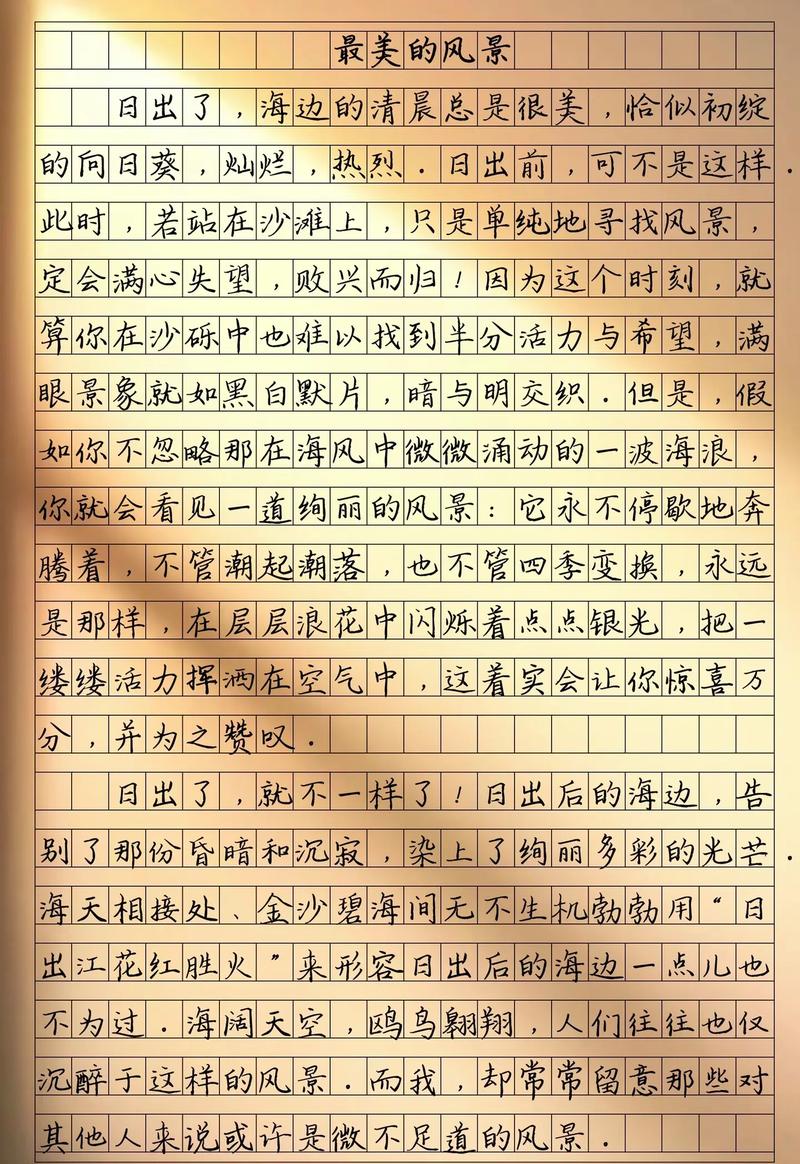 最美的风景
日出了，海边的清晨总是很美，恰似初绽
的向日葵，灿烂，热烈．日出前，可不是这样．
此时，若站在沙滩上，只是单纯地寻找风景，
定会满心失望，败兴而归！因为这个时刻，就
算你在沙砾中也难以找到半分活力与希望，满
眼景象就如黑白默片，暗与明交织．但是，假
如你不忽略那在海风中微微涌动的一波海浪，
你就会看见一道绚丽的风景：它永不停歇地奔
腾着，不管潮起潮落，也不管四季变换，永远
是那样，在层层浪花中闪烁着点点银光，把一
缕缕活力挥洒在空气中，这着实会让你惊喜万
分，并为之赞叹．
日出了，就不一样了！日出后的海边，告
别了那份昏暗和沉寂，染上了绚丽多彩的光芒．
海天相接处、金沙碧海间无不生机勃勃用“日
出江花红胜火”来形容日出后的海边一点儿也
不为过．海阔天空，鸥鸟翱翔，人们往往也仅
沉醉于这样的风景．而我，却常常留意那些对
其他人来说或许是微不足道的风景．